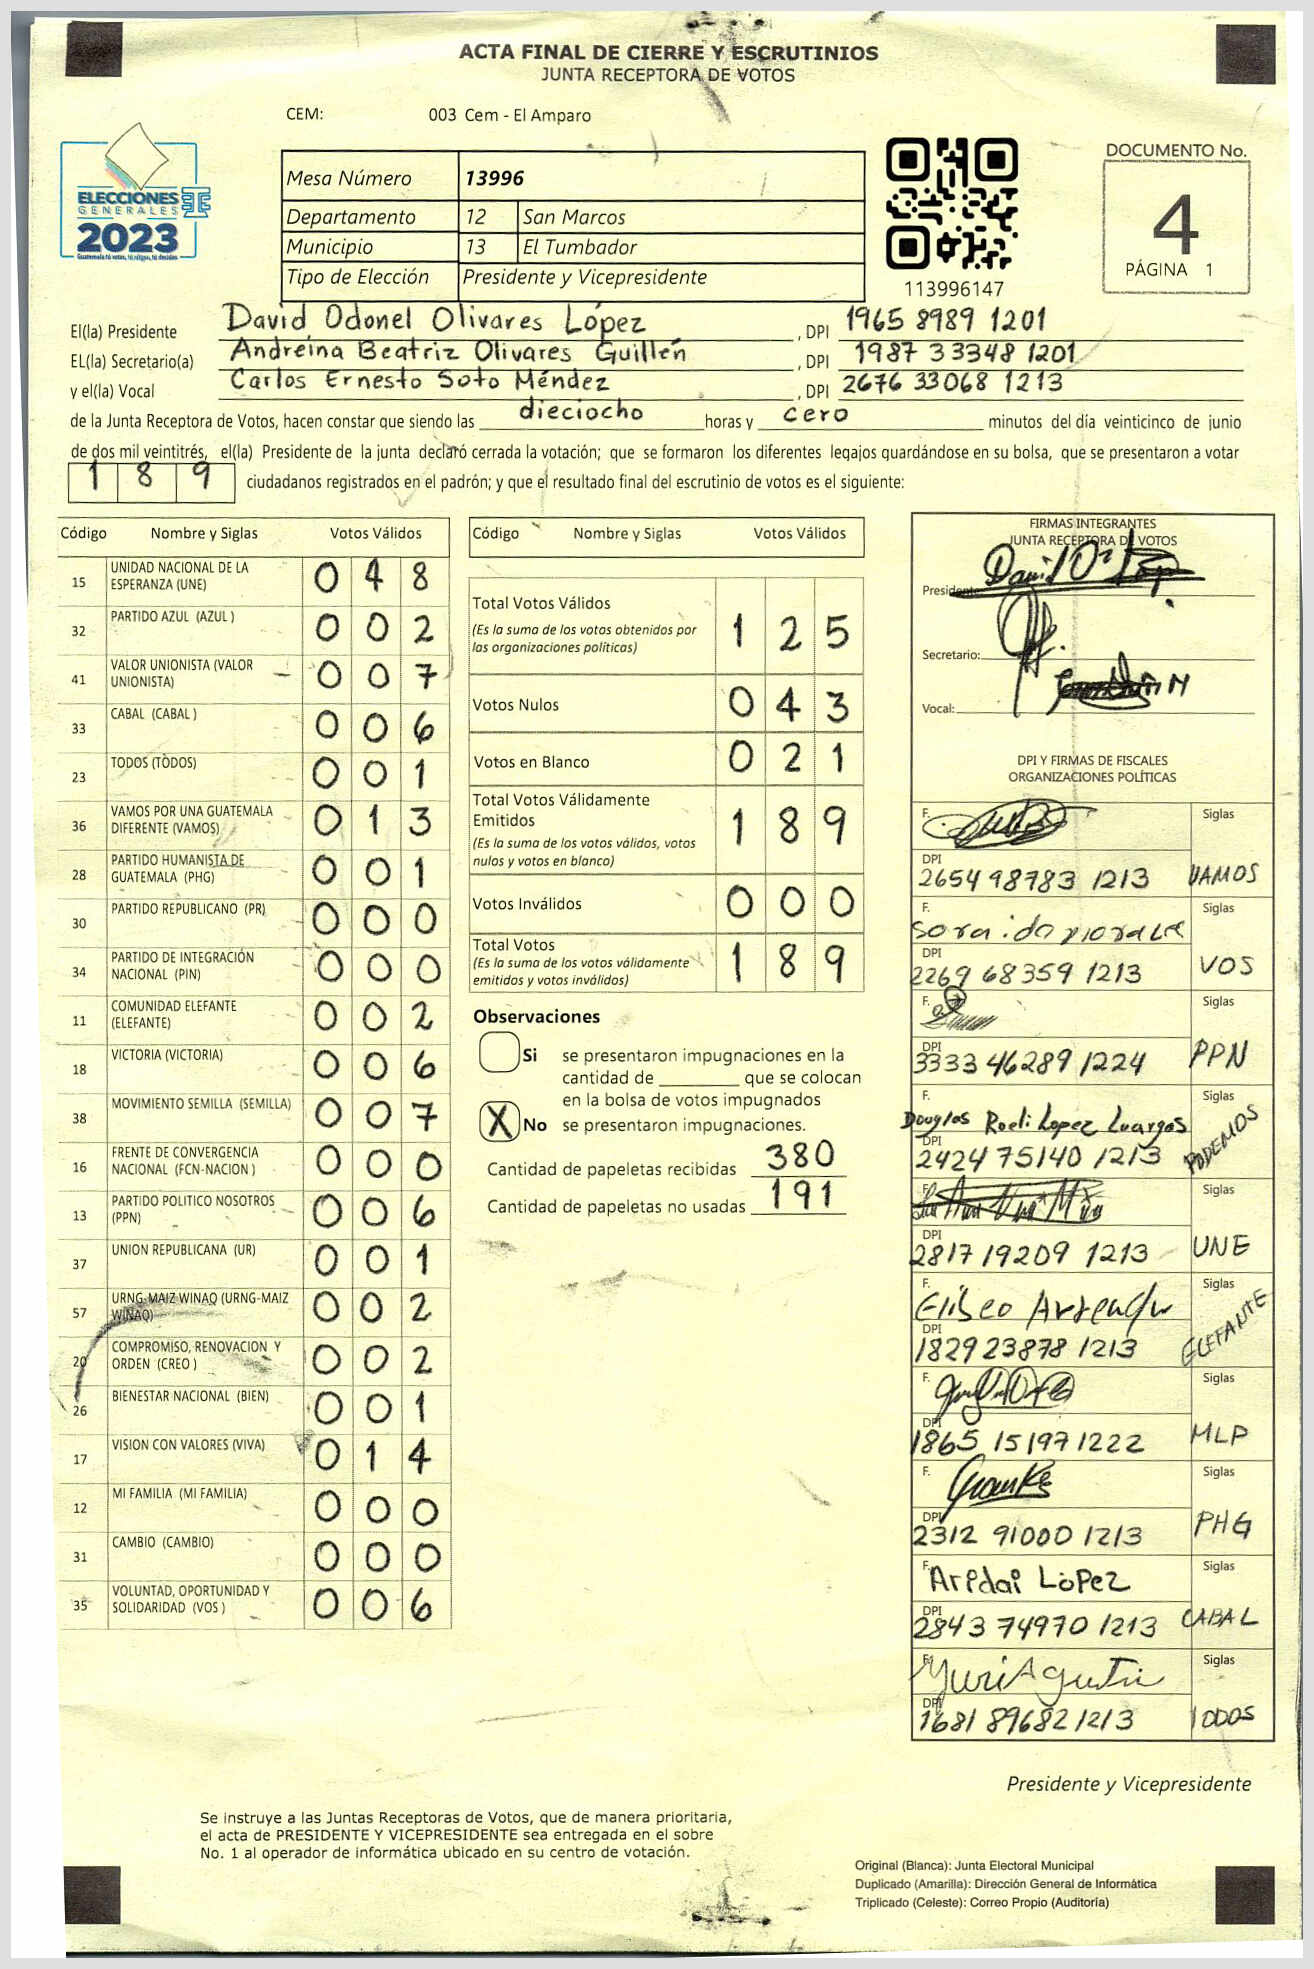 ACTA FINAL DE CIERRE Y ESCRUTINIOS
JUNTA RECEPTORA DE VOTOS
CEM: 003 Cem - El Amparo
ELECCIONES
GENERALES
2023
Guatemala tú votas, tú eliges, tú decides
Mesa Número 13996
Departamento 12 San Marcos
Municipio 13 El Tumbador
Tipo de Elección Presidente y Vicepresidente
113996147
DOCUMENTO No.
4
PÁGINA 1
El(la) Presidente David Odonel Olivares López , DPI 1965 8989 1201
EL(la) Secretario(a) Andreina Beatriz Olivares Guillén , DPI 1987 33348 1201
y el(la) Vocal Carlos Ernesto Soto Méndez , DPI 2676 33068 1213
de la Junta Receptora de Votos, hacen constar que siendo las dieciocho horas y cero minutos del día veinticinco de junio
de dos mil veintitrés, el(la) Presidente de la junta declaró cerrada la votación; que se formaron los diferentes legajos guardándose en su bolsa, que se presentaron a votar
189 ciudadanos registrados en el padrón; y que el resultado final del escrutinio de votos es el siguiente:
Código Nombre y Siglas Votos Válidos
15 UNIDAD NACIONAL DE LA ESPERANZA (UNE) 0 4 8
32 PARTIDO AZUL (AZUL ) 0 0 2
41 VALOR UNIONISTA (VALOR UNIONISTA) 0 0 7
33 CABAL (CABAL ) 0 0 6
23 TODOS (TODOS) 0 0 1
36 VAMOS POR UNA GUATEMALA DIFERENTE (VAMOS) 0 1 3
28 PARTIDO HUMANISTA DE GUATEMALA (PHG) 0 0 1
30 PARTIDO REPUBLICANO (PR) 0 0 0
34 PARTIDO DE INTEGRACIÓN NACIONAL (PIN) 0 0 0
11 COMUNIDAD ELEFANTE (ELEFANTE) 0 0 2
18 VICTORIA (VICTORIA) 0 0 6
38 MOVIMIENTO SEMILLA (SEMILLA) 0 0 7
16 FRENTE DE CONVERGENCIA NACIONAL (FCN-NACION ) 0 0 0
13 PARTIDO POLITICO NOSOTROS (PPN) 0 0 6
37 UNION REPUBLICANA (UR) 0 0 1
57 URNG-MAIZ WINAQ (URNG-MAIZ WINAQ) 0 0 2
20 COMPROMISO, RENOVACION Y ORDEN (CREO ) 0 0 2
26 BIENESTAR NACIONAL (BIEN) 0 0 1
17 VISION CON VALORES (VIVA) 0 1 4
12 MI FAMILIA (MI FAMILIA) 0 0 0
31 CAMBIO (CAMBIO) 0 0 0
35 VOLUNTAD, OPORTUNIDAD Y SOLIDARIDAD (VOS ) 0 0 6
Código Nombre y Siglas Votos Válidos
Total Votos Válidos 1 2 5
(Es la suma de los votos obtenidos por
las organizaciones políticas)
Votos Nulos 0 4 3
Votos en Blanco 0 2 1
Total Votos Válidamente
Emitidos 1 8 9
(Es la suma de los votos válidos, votos
nulos y votos en blanco)
Votos Inválidos 0 0 0
Total Votos 1 8 9
(Es la suma de los votos válidamente
emitidos y votos inválidos)
Observaciones
Si se presentaron impugnaciones en la
cantidad de ________ que se colocan
en la bolsa de votos impugnados
X No se presentaron impugnaciones.
Cantidad de papeletas recibidas 380
Cantidad de papeletas no usadas 191
FIRMAS INTEGRANTES
JUNTA RECEPTORA DE VOTOS
Presidente:
Secretario:
Vocal:
DPI Y FIRMAS DE FISCALES
ORGANIZACIONES POLÍTICAS
F. Siglas
DPI
2654 98783 1213 VAMOS
F. Siglas
DPI
2269 68359 1213 VOS
F. Siglas
DPI
3333 46289 1224 PPN
F. Siglas
Douglas Roeli Lopez
DPI
2424 75140 1213 PODEMOS
F. Siglas
DPI
2817 19209 1213 UNE
F. Siglas
Eliseo
DPI
1829 23878 1213 ELEFANTE
F. Siglas
DPI
1865 15197 1222 MLP
F. Siglas
DPI
2312 91000 1213 PHG
F. Siglas
Aridai Lopez
DPI
2843 74970 1213 CABAL
F. Siglas
Yuri Agustin
DPI
1681 89682 1213 TODOS
Presidente y Vicepresidente
Se instruye a las Juntas Receptoras de Votos, que de manera prioritaria,
el acta de PRESIDENTE Y VICEPRESIDENTE sea entregada en el sobre
No. 1 al operador de informática ubicado en su centro de votación.
Original (Blanca): Junta Electoral Municipal
Duplicado (Amarilla): Dirección General de Informática
Triplicado (Celeste): Correo Propio (Auditoría)